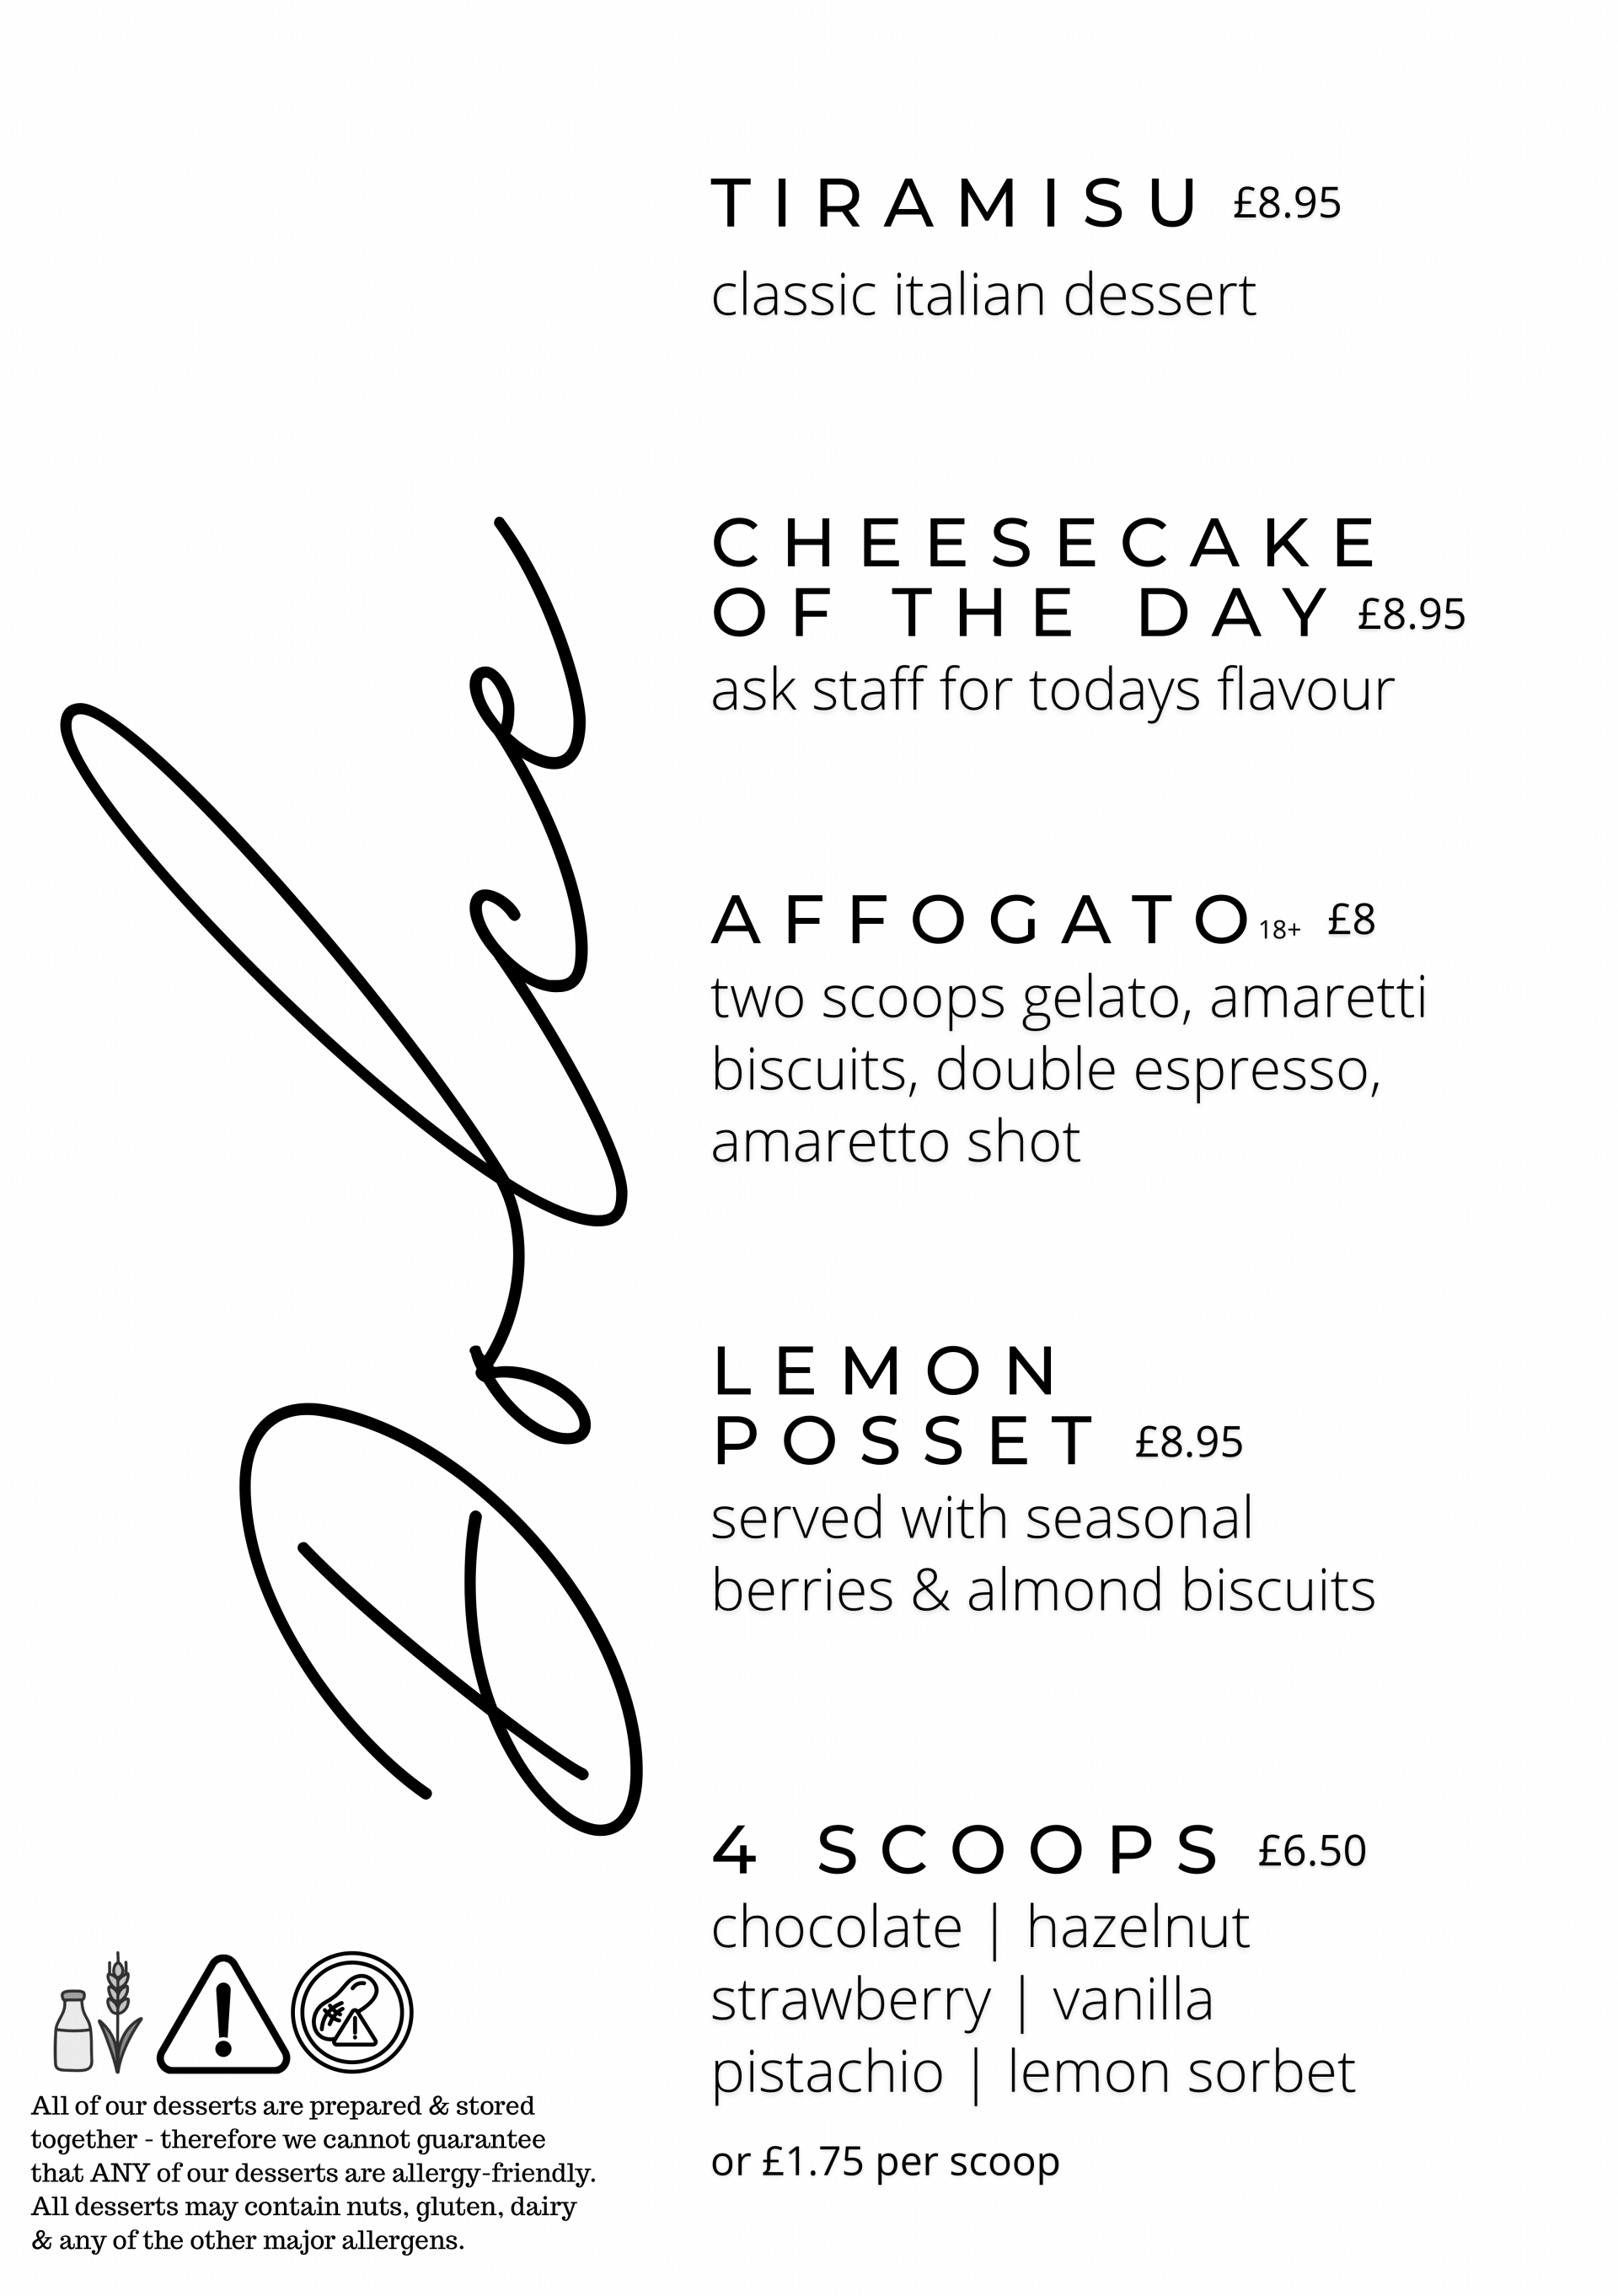 Dolce
TIRAMISU £8.95
classic italian dessert
CHEESECAKE
OF THE DAY £8.95
ask staff for todays flavour
AFFOGATO 18+ £8
two scoops gelato, amaretti
biscuits, double espresso,
amaretto shot
LEMON
POSSET £8.95
served with seasonal
berries & almond biscuits
4 SCOOPS £6.50
chocolate | hazelnut
strawberry | vanilla
pistachio | lemon sorbet
or £1.75 per scoop
All of our desserts are prepared & stored
together - therefore we cannot guarantee
that ANY of our desserts are allergy-friendly.
All desserts may contain nuts, gluten, dairy
& any of the other major allergens.